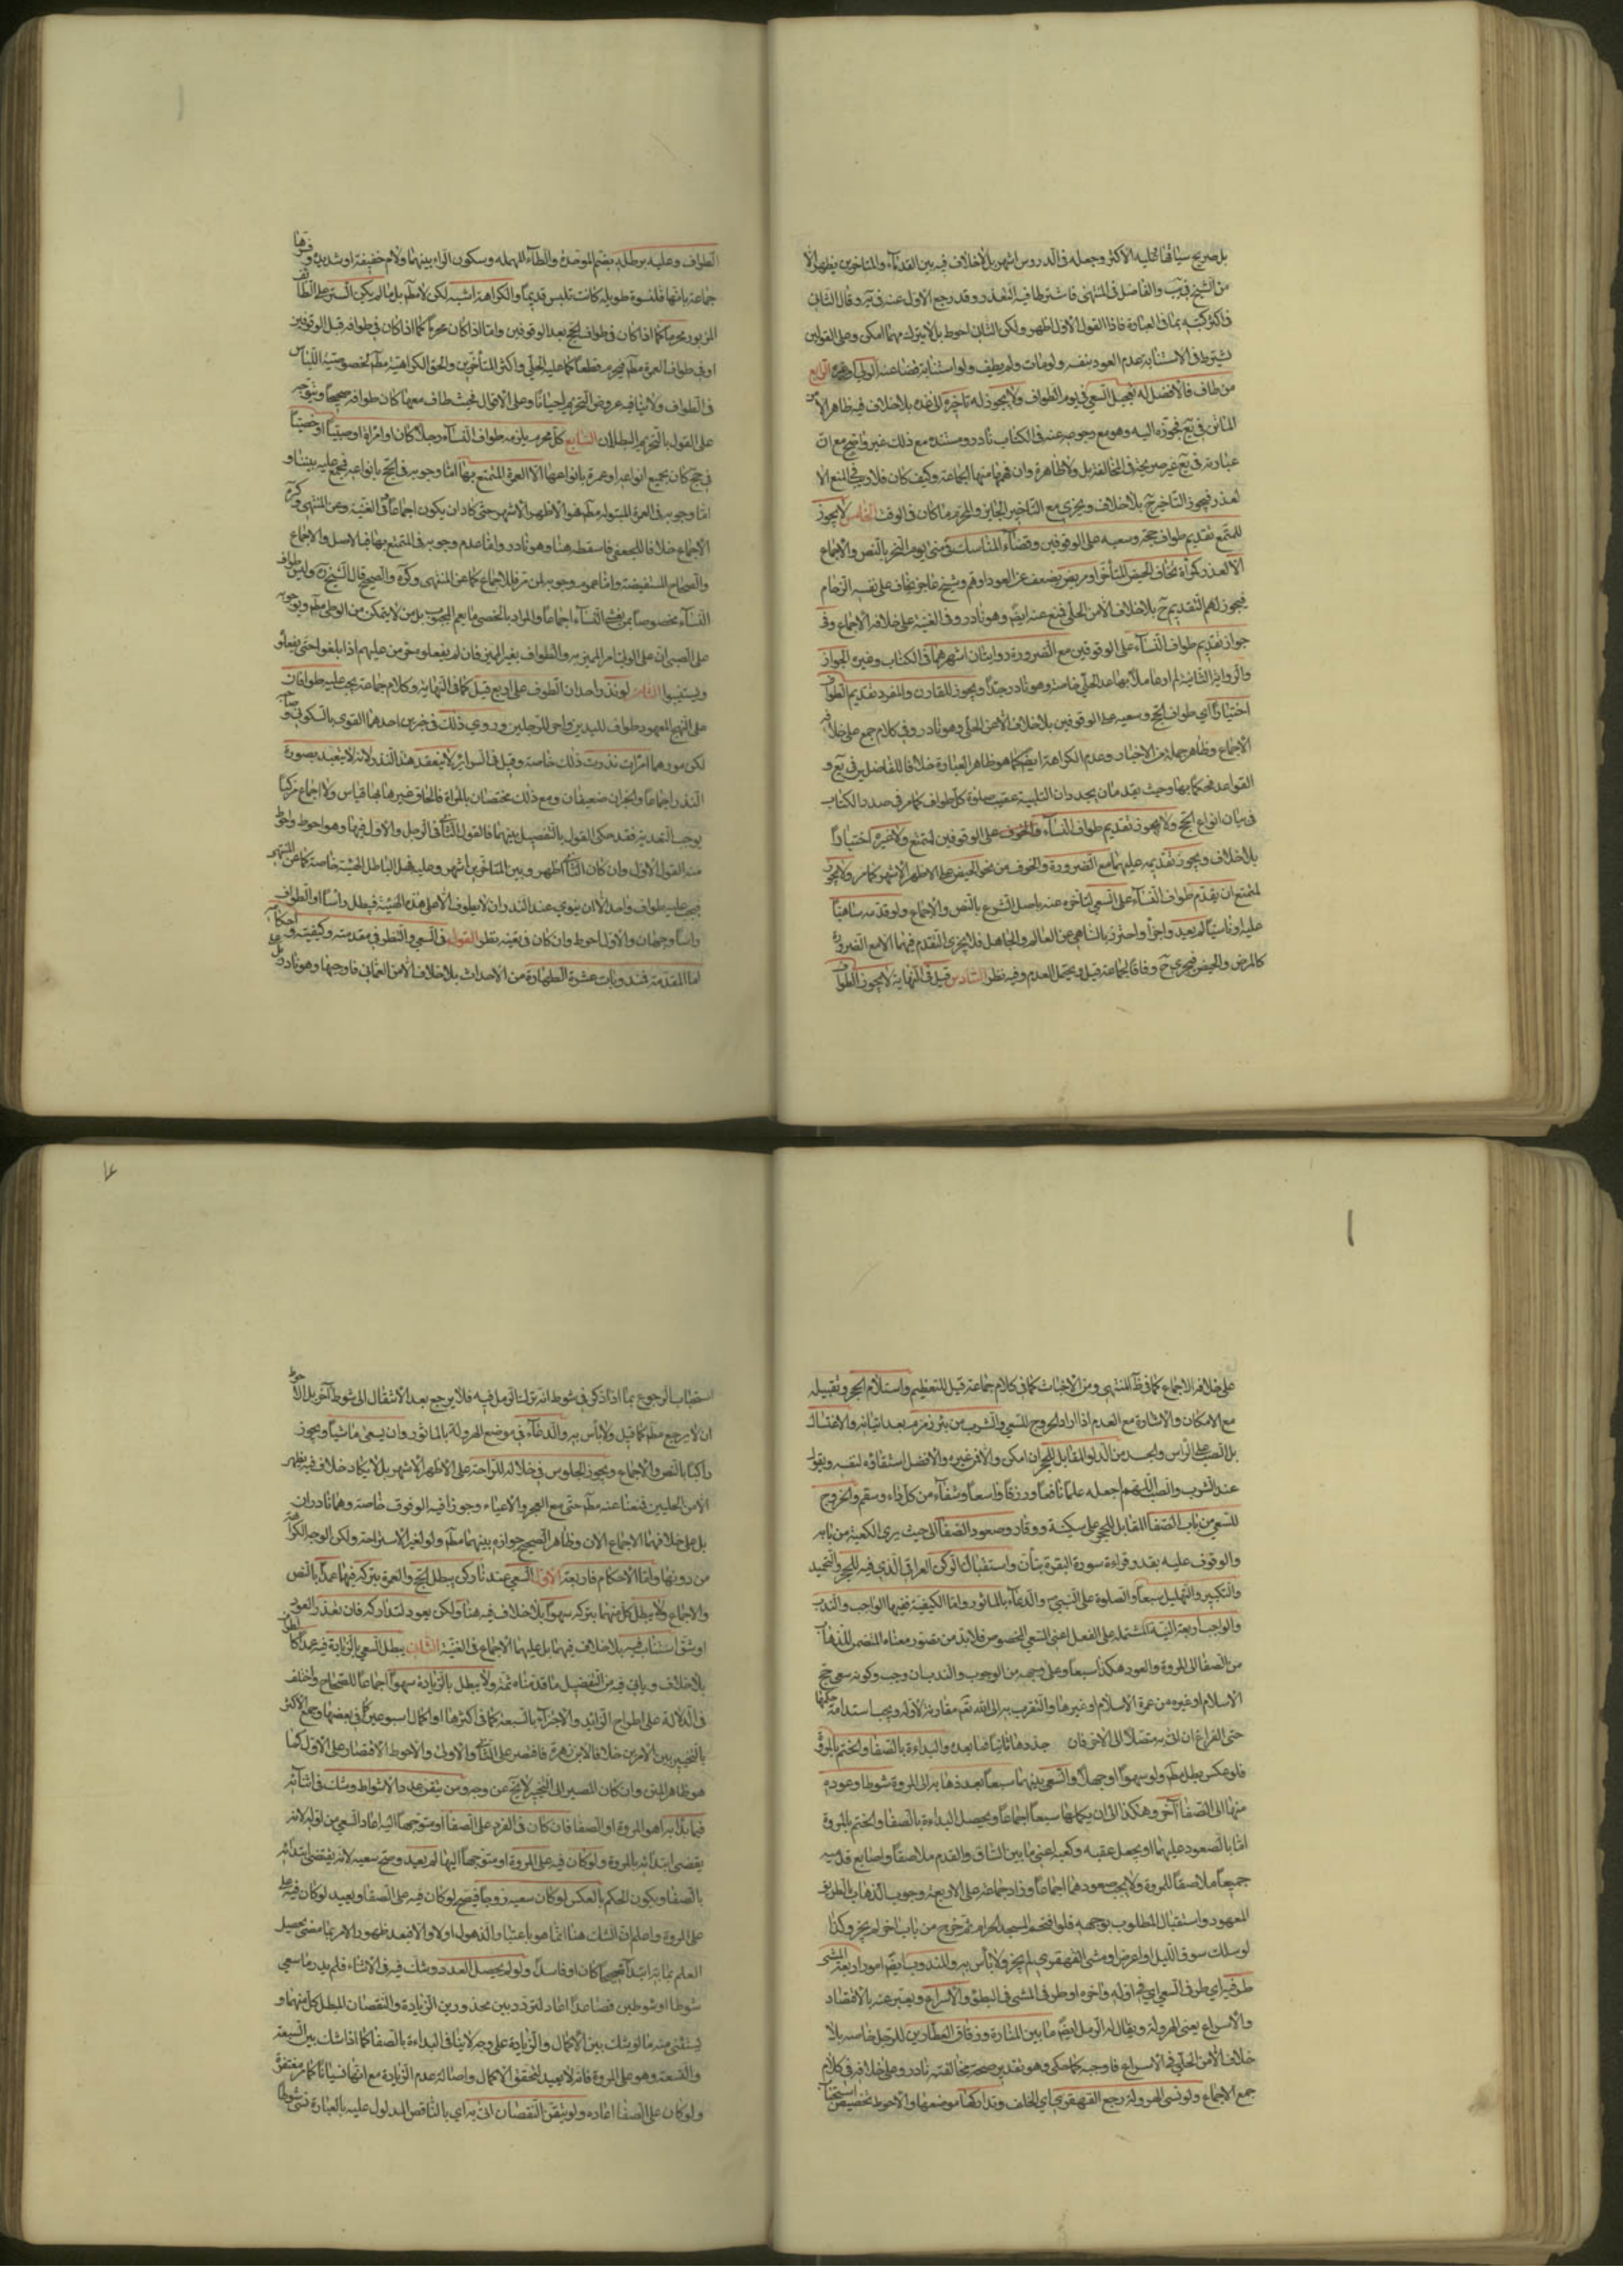 بل صريح سياقها عليه الاكثر وجعله في الدروس اشهر بل لا خلاف فيه بين القدماء والمتاخرين يظهر الا
من الشيخ في يب والفاضل في المنتهى فاشترطا فيه التعذر وقد رجع الاول عنه في ير وقال الثاني
في اكثر كتبه بما في العبارة فاذا القول الاول اظهر ولكن الثاني احوط بل لا يترك مهما امكن وعلى القولين
يشترط في الاستنابة عدم العود بنفسه ولو مات ولم يطف ولو استنابة قضا عنه الولي او غيره الرابع
من طاف فالافضل له تعجيل السعي في يوم الطواف ولا يجوز له تاخيره الى غده بلا خلاف فيه ظاهر الا من
الماتن في يع فجوزه اليه وهو مع رجوعه عنه في الكتاب نادر ومستنده مع ذلك غير واضح مع ان
عبارته في يع غير صريحة في المخالفة بل ولا ظاهرة وان فهمها منها الجماعة وكيف كان فلا ريب في المنع الا
لعذر فيجوز التاخير ح بلا خلاف ويجزي مع التاخير الجايز والمحرم ما كان في الوقت الخامس لا يجوز
للمتمتع تقديم طواف حجه وسعيه على الوقوفين وقضاء المناسك في منى يوم النحر بالنص والاجماع
الا لعذر كمرأة تخاف الحيض المتأخر او مريض يضعف عن العود او هم وشيخ عاجز يخاف على نفسه الزحام
فيجوز لهم التقديم ح بلا خلاف الا من الحلي فمنع عنه ايضا وهو نادر وفي الغنية على خلافه الاجماع وفي
جواز تقديم طواف النساء على الوقوفين مع الضرورة روايتان اشهرهما في الكتاب وغيره الجواز
والرواية الثانية لم ار عاملا بها عدا الحلي خاصة وهو نادر جدا ويجوز للقارن والمفرد تقديم الطواف
اختيارا اي طواف الحج وسعيه على الوقوفين بلا خلاف الا من الحلي وهو نادر وفي كلام جمع على خلافه
الاجماع وظاهر جملة من الاخبار وعدم الكراهة ايضا كما هو ظاهر العبارة خلافا للفاضلين في يع و
القواعد فحكما بها وحيث يقدمان يجددان التلبية عقيب صلوة كل طواف كما مر في صدر الكتاب
في بيان انواع الحج ولا يجوز تقديم طواف النساء على الوقوفين لمتمتع ولا غيره اختيارا
بلا خلاف ويجوز تقديمه عليهما مع الضرورة والخوف من نحو الحيض على الاظهر الاشهر كما مر ولا يجوز
لمتمتع ان يقدم طواف النساء على السعي لتاخره عنه باصل الشرع بالنص والاجماع ولو قدمه ساهيا
عليه او ناسيا لم يعد واجزأ واحترز بالساهي عن العالم والجاهل فلا يجزي التقدم فيهما الا مع الضرورة
كالمرض والحيض فيجزي ح وفاقا لجماعة قيل ويحتمل العدم وفيه نظر السادس قيل في النهاية لا يجوز الطواف
الطواف وعليه برطلة بضم الموحدة والطاء المهملة وسكون الراء بينهما ولام خفيفة او شديدة وفسرها
جماعة بانها قلنسوة طويلة كانت تلبس قديما والكراهة اشبه لكن لا مطم بل ما لم يكن الستر على الطائف
المزبور محرما كما اذا كان في طواف الحج بعد الوقوفين واما اذا كان محرما كما اذا كان في طوافه قبل الوقوفين
او في طواف العمرة مطم فيحرم قطعا كما عليه الحلي واكثر المتأخرين والحق الكراهية مطم لخصوصية اللباس
في الطواف ولا ينافيه عروض التحريم احيانا وعلى الاقوال فحيث طاف معها كان طوافه صحيحا ويتوجه
على القول بالتحريم البطلان السابع كل محرم يلزمه طواف النساء رجلا كان او امراة او صبيا او خصيا
في حج كان بجميع انواعه او عمرة بانواعها الا العمرة المتمتع بها اما وجوبه في الحج بانواعه فمجمع عليه بيننا و
اما وجوبه في العمرة المبتولة مطم فهو الاظهر الاشهر حتى كاد ان يكون اجماعا وفي الغنية وعن المنتهى وكره
الاجماع خلافا للجعفي فاسقطه هنا وهو نادر واما عدم وجوبه في المتمتع بها فبالاصل والاجماع
والصحاح المستفيضة واما عموم وجوبه لمن ذكر فللاجماع كما عن المنتهى وكره والصحيح قال الشيخ ره وليس طواف
النساء مخصوصا بمن يغشى النساء اجماعا والمراد بالخصي ما يعم المجبوب بل من لا يتمكن من الوطي مطم ووجوبه
على الصبي ان على الولي امر المميز به والطواف بغير المميز فان لم يفعلوه حرمن عليهم اذا بلغوا حتى يفعلو
ويستنيبوا الثامن لو نذر احد ان الطوف على اربع قيل كما في النهاية وكلام جماعة يجب عليه طوافان
على النهج المعهود طواف لليدين واخر للرجلين وروي ذلك في خبرين احدهما القوي بالسكوني وصاحبه
لكن موردهما امراة نذرت ذلك خاصة وقيل في السرائر لا ينعقد هذا النذر لانه لا يتعبد بصورة
النذر اجماعا والخبران ضعيفان ومع ذلك مختصان بالمراة فالحاق غيرها بها قياس ولا اجماع مركبا
يوجب التعدية فقد حكى القول بالتفصيل بينهما فالقول الثاني في الرجل والاول فيها وهو احوط واحوط
منه القول الاول وان كان الثاني اظهر وبين المتاخرين اشهر وعليه فهل الباطل الهيئة خاصة كما عن المنتهى
فيجب عليه طواف واحد الا ان ينوي عند النذر ان لا يطوف الا على هذه الهيئة فيبطل رأسا او الطواف
راسا وجهان والاول احوط وان كان في تعينه نظر القول في السعي والنظر في مقدمته وكيفيته واحكامه
اما المقدمة فمندوبات عشرة الطهارة من الاحداث بلا خلاف الا من العماني فاوجبها وهو نادر بل
على خلافه الاجماع كما في ظاهر المنتهى ومن الاخباث كما في كلام جماعة قيل للتعظيم واستلام الحجر وتقبيله
مع الامكان والاشارة مع العدم اذا اراد الخروج للسعي والشرب من بئر زمزم بعد اتيانه والاغتسال
بل الصب على الراس والجسد من الدلو المقابل للحجر ان امكن والا فمن غيره والافضل استقاؤه لنفسه ويقول
عند الشرب والصب اللهم اجعله علما نافعا ورزقا واسعا وشفاء من كل داء وسقم والخروج
للسعي من باب الصفا المقابل للحجر على سكينة ووقار وصعود الصفا الى حيث يرى الكعبة من بابه
والوقوف عليه بقدر قراءة سورة البقرة بتأن واستقبال الركن العراقي الذي فيه الحجر والتحميد
والتكبير والتهليل سبعا والصلوة على النبي والدعاء بالماثور واما الكيفية ففيها الواجب والندب
والواجب اربعة النية المشتملة على الفعل اعني السعي المخصوص فلا بد من تصور معناه المتضمن للذهاب
من الصفا الى المروة والعود هكذا سبعا وعلى وجهه من الوجوب والندب ان وجب وكونه سعي حج
الاسلام او غيره من عمرة الاسلام او غيرها والتقرب به الى الله تعم مقارنة لاوله ويجب استدامة حكمها
حتى الفراغ ان اتى به متصلا الى الاخر فان جددها ثانيا فما بعده والبداءة بالصفا والختم بالمروة
فلو عكس بطل مطم ولو سهوا او جهلا والسعي بينهما سبعا بعد ذهابه الى المروة شوطا وعوده
منها الى الصفا اخر وهكذا الى ان يكملها سبعا اجماعا ويحصل البداءة بالصفا والختم بالمروة
اما بالصعود عليهما او بجعل عقبه وكعبه اعني ما بين الساق والقدم ملاصقا واصابع قدميه
جميعا ملاصقا للمروة ولا يجب صعودهما اجماعا وزاد جماعة على الاربعة وجوب الذهاب بالطريق
المعهود واستقبال المطلوب بوجهه فلو اقتحم المسجد الحرام ثم خرج من باب اخر لم يجز وكذا
لو سلك سوق الليل او اعرض او مشى القهقرى لم يجز ولا بأس به والمندوب ايضا امور اربعة المشي
طرفيه اي طرفي السعي اي في اوله واخره او طرفي المشي في البطؤ والاسراع ويعتبر عنه بالاقتصاد
والاسراع يعني الهرولة ويقال له الرمل ايضا ما بين المنارة وزقاق العطارين للرجل خاصة بلا
خلاف الا من الحلبي في الاسراع فاوجبه كما حكي وهو بتقدير صحته مخالفته نادر وعلى خلافه في كلام
جمع الاجماع ولو نسي الهرولة رجع القهقرى اي الى الخلف وتداركها موضعها والاحوط تخصيص استحباب
استحباب الرجوع بما اذا ذكر في شوط انه ترك الرمل فيه فلا يرجع بعد الانتقال الى شوط آخر بل الاحوط
ان لا يرجع مطم كما قيل ولا بأس به والدعاء في موضع الهرولة بالماثور وان يسعى ماشيا ويجوز
راكبا بالنص والاجماع ويجوز الجلوس في خلاله للراحة على الاظهر الاشهر بل لا يكاد خلاف فيه يظهر
الا من الحلبيين فمنعنا عنه مطم حتى مع العجز والاعياء وجوزا فيه الوقوف خاصة وهما نادران
بل على خلافهما الاجماع الان وظاهر الصحيح جوازه بينهما مطم ولو لغير الاستراحة ولكن الوجه الكراهة
من دونها واما الاحكام فاربعة الاول السعي عندنا ركن يبطل الحج والعمرة بتركه فيهما عمدا بالنص
والاجماع ولا يبطل كل منهما بتركه سهوا بلا خلاف فيه هنا ولكن يعود لتداركه فان تعذر العود
او شق استناب فيه بلا خلاف فيهما بل عليهما الاجماع في الغنية الثاني يبطل السعي بالزيادة فيه عمدا كالطواف
بلا خلاف وياتي فيه من التفصيل ما قدمناه ثمه ولا يبطل بالزيادة سهوا اجماعا للصحاح واختلف
في الدلالة على اطراح الزائد والاجزاء بالسبعة كما في اكثرها او اكمال اسبوعين كما في بعضها وجمع الاكثر
بالتخيير بين الامرين خلافا لابن زهرة فاقتصر على الثاني والاولى والاحوط الاقتصار على الاول كما
هو ظاهر المتن وان كان المصير الى التخيير لا يخ عن وجه ومن تيقن عدد الاشواط وشك في اثنائه
فيما بدا به اهو المروة او الصفا فان كان في الفرد على الصفا او متوجها اليه اعاد السعي من اوله لانه
يقتضي ابتدائه بالمروة ولو كان فيه على المروة او متوجها اليها لم يعد وصح سعيه لانه يقتضي ابتدائه
بالصفا ويكون الحكم بالعكس لو كان سعيه زوجا فيصح لو كان فيه على الصفا ويعيد لو كان فيه على
على المروة واعلم ان الشك هنا انما هو باعتبار الذهول اولا والا فبعد ظهور الامر بما مضى يحصل
العلم بما به ابتدأ صحيحا كان او فاسدا ولو لم يحصل العدد وشك فيه في الاثناء فلم يدر ما سعى
شوطا او شوطين فصاعدا اعاد لتردده بين محذورين الزيادة والنقصان المبطل كل منهما و
يستثنى منه ما لو شك بين الاكمال والزيادة على وجه لا ينافي البداءة بالصفا كما اذا شك بين السبعة
والتسعة وهو على المروة فانه لا يعيد لتحقق الاكمال واصالة عدم الزيادة مع انها نسيانا كما مر مغتفرة
ولو كان على الصفا اعاده ولو تيقن النقصان اتى به اي بالناقص المدلول عليه بالعبارة نسي شوطا